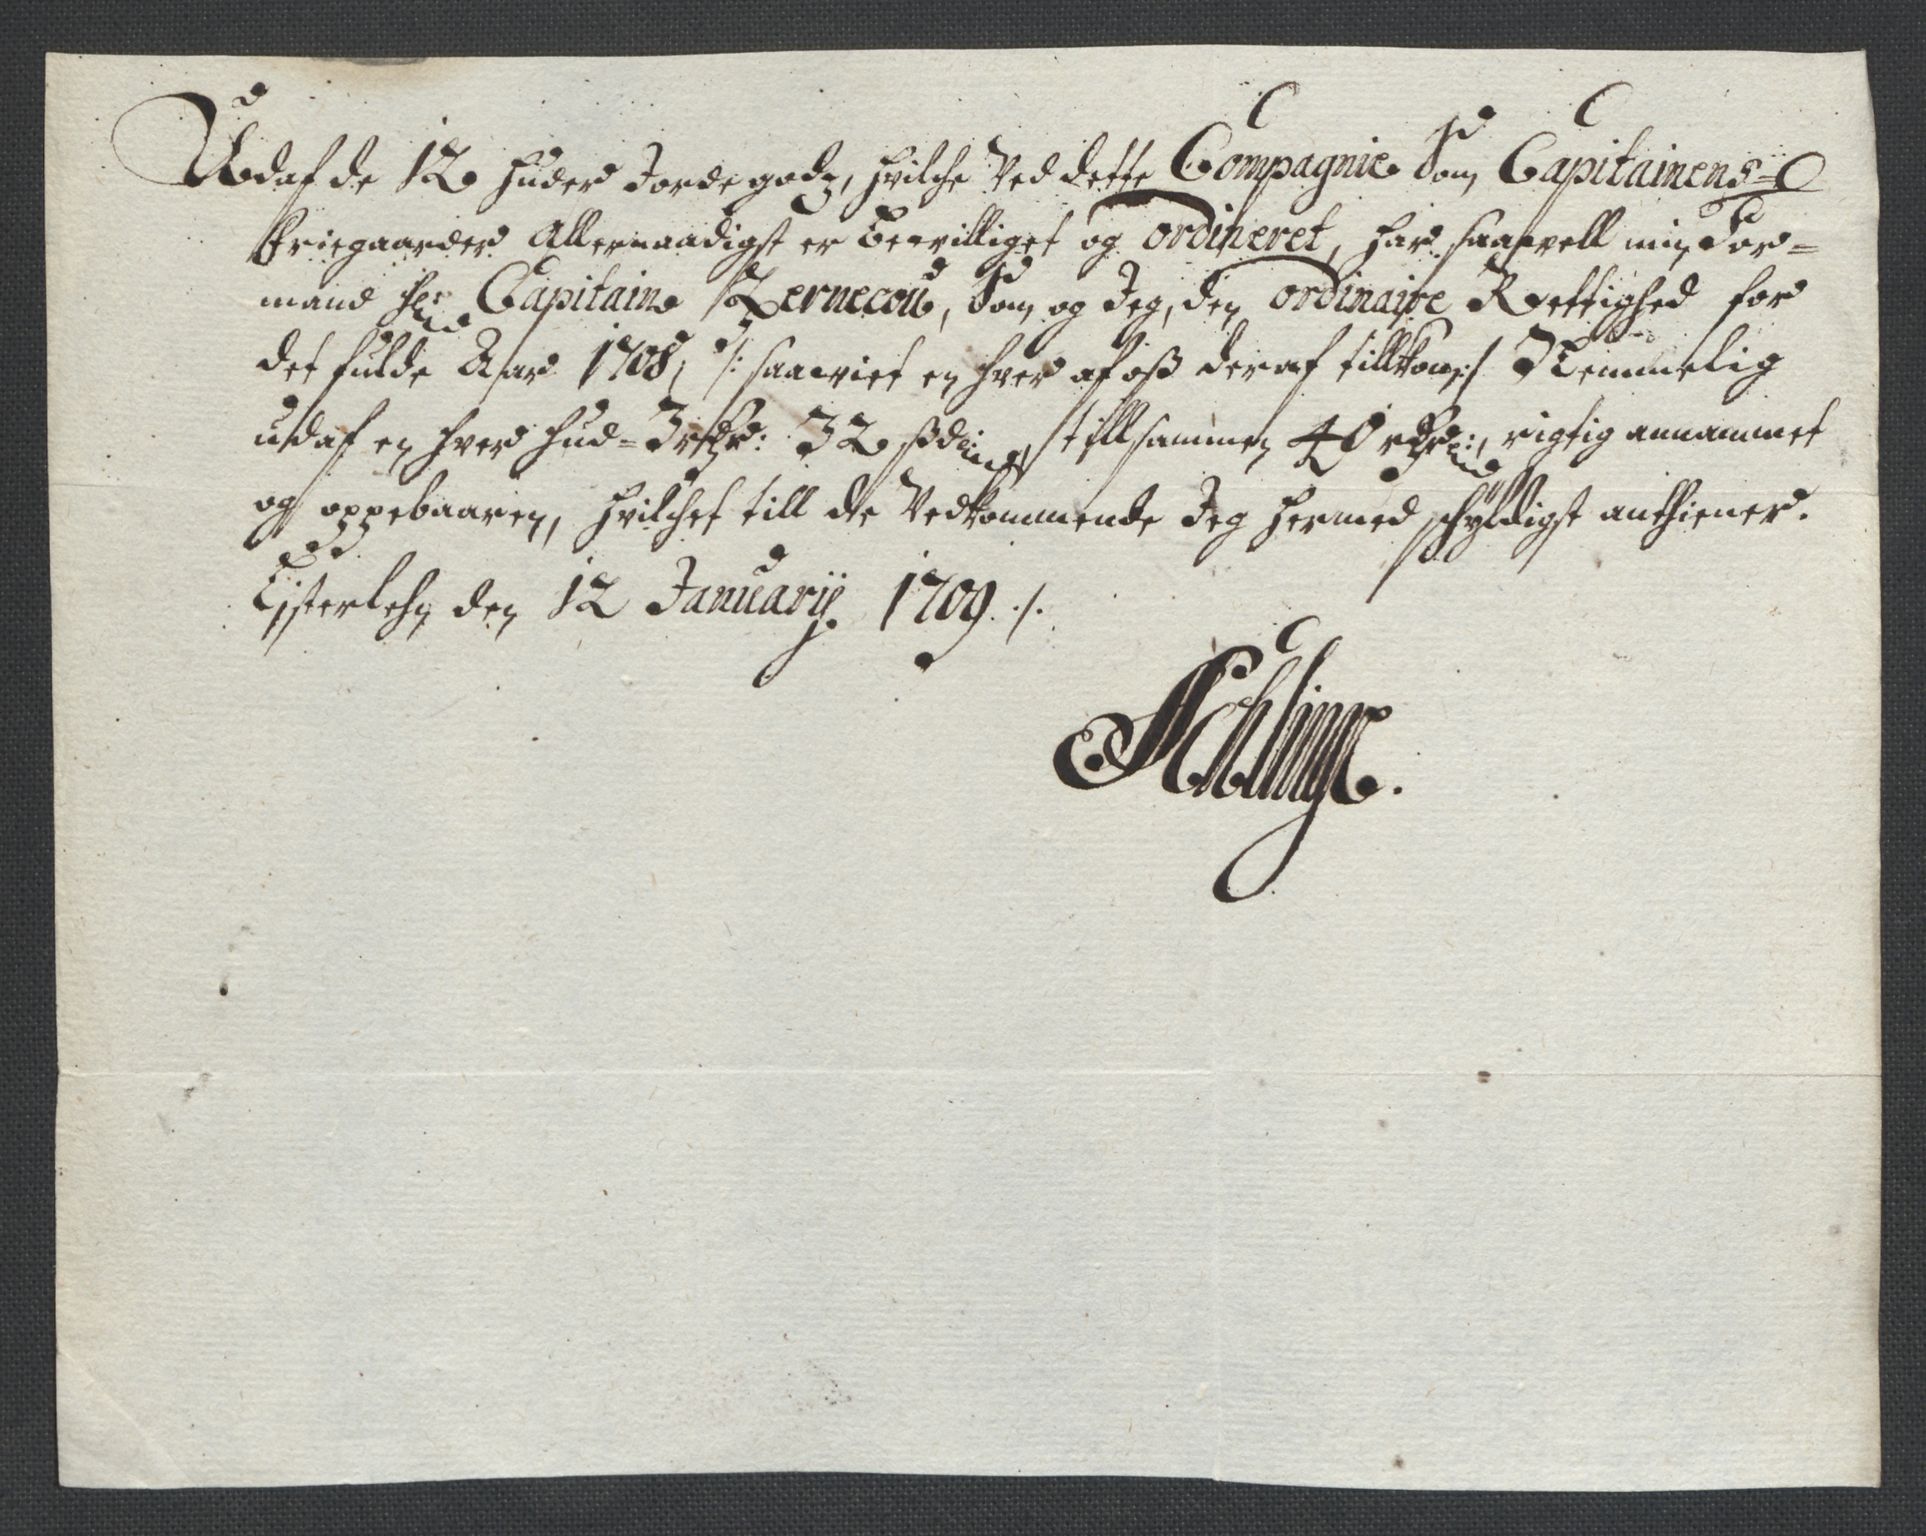 Udaf de 12 huder Jordegodz, hvilche Ved dette Compagnie Som Capitainens
Friegaarder Allernaadigst er Beevilliget og ordineret, har saavell min For=
mand her Capitaine Zernecou, Som og Jeg, den ordinaire Rettighed for
det fulde Aar 1708, /: saaviet en hver af oss deraf tillkom :/ Nemmelig
udaf en hver hud= 3 rdr: 32 s, tillsammen 40 rdr:, rigtig annammet
og oppebaaren, hvilchet till de Vedkommende Jeg hermed schyldigst anthiener.
Eysterlehn den 12 Januarij 1709 ./.